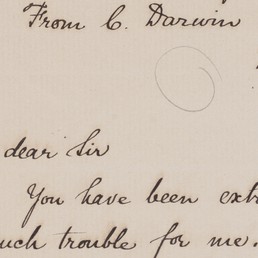 From C. Darwin
dear Sir
You have been extr
uch trouble for me.